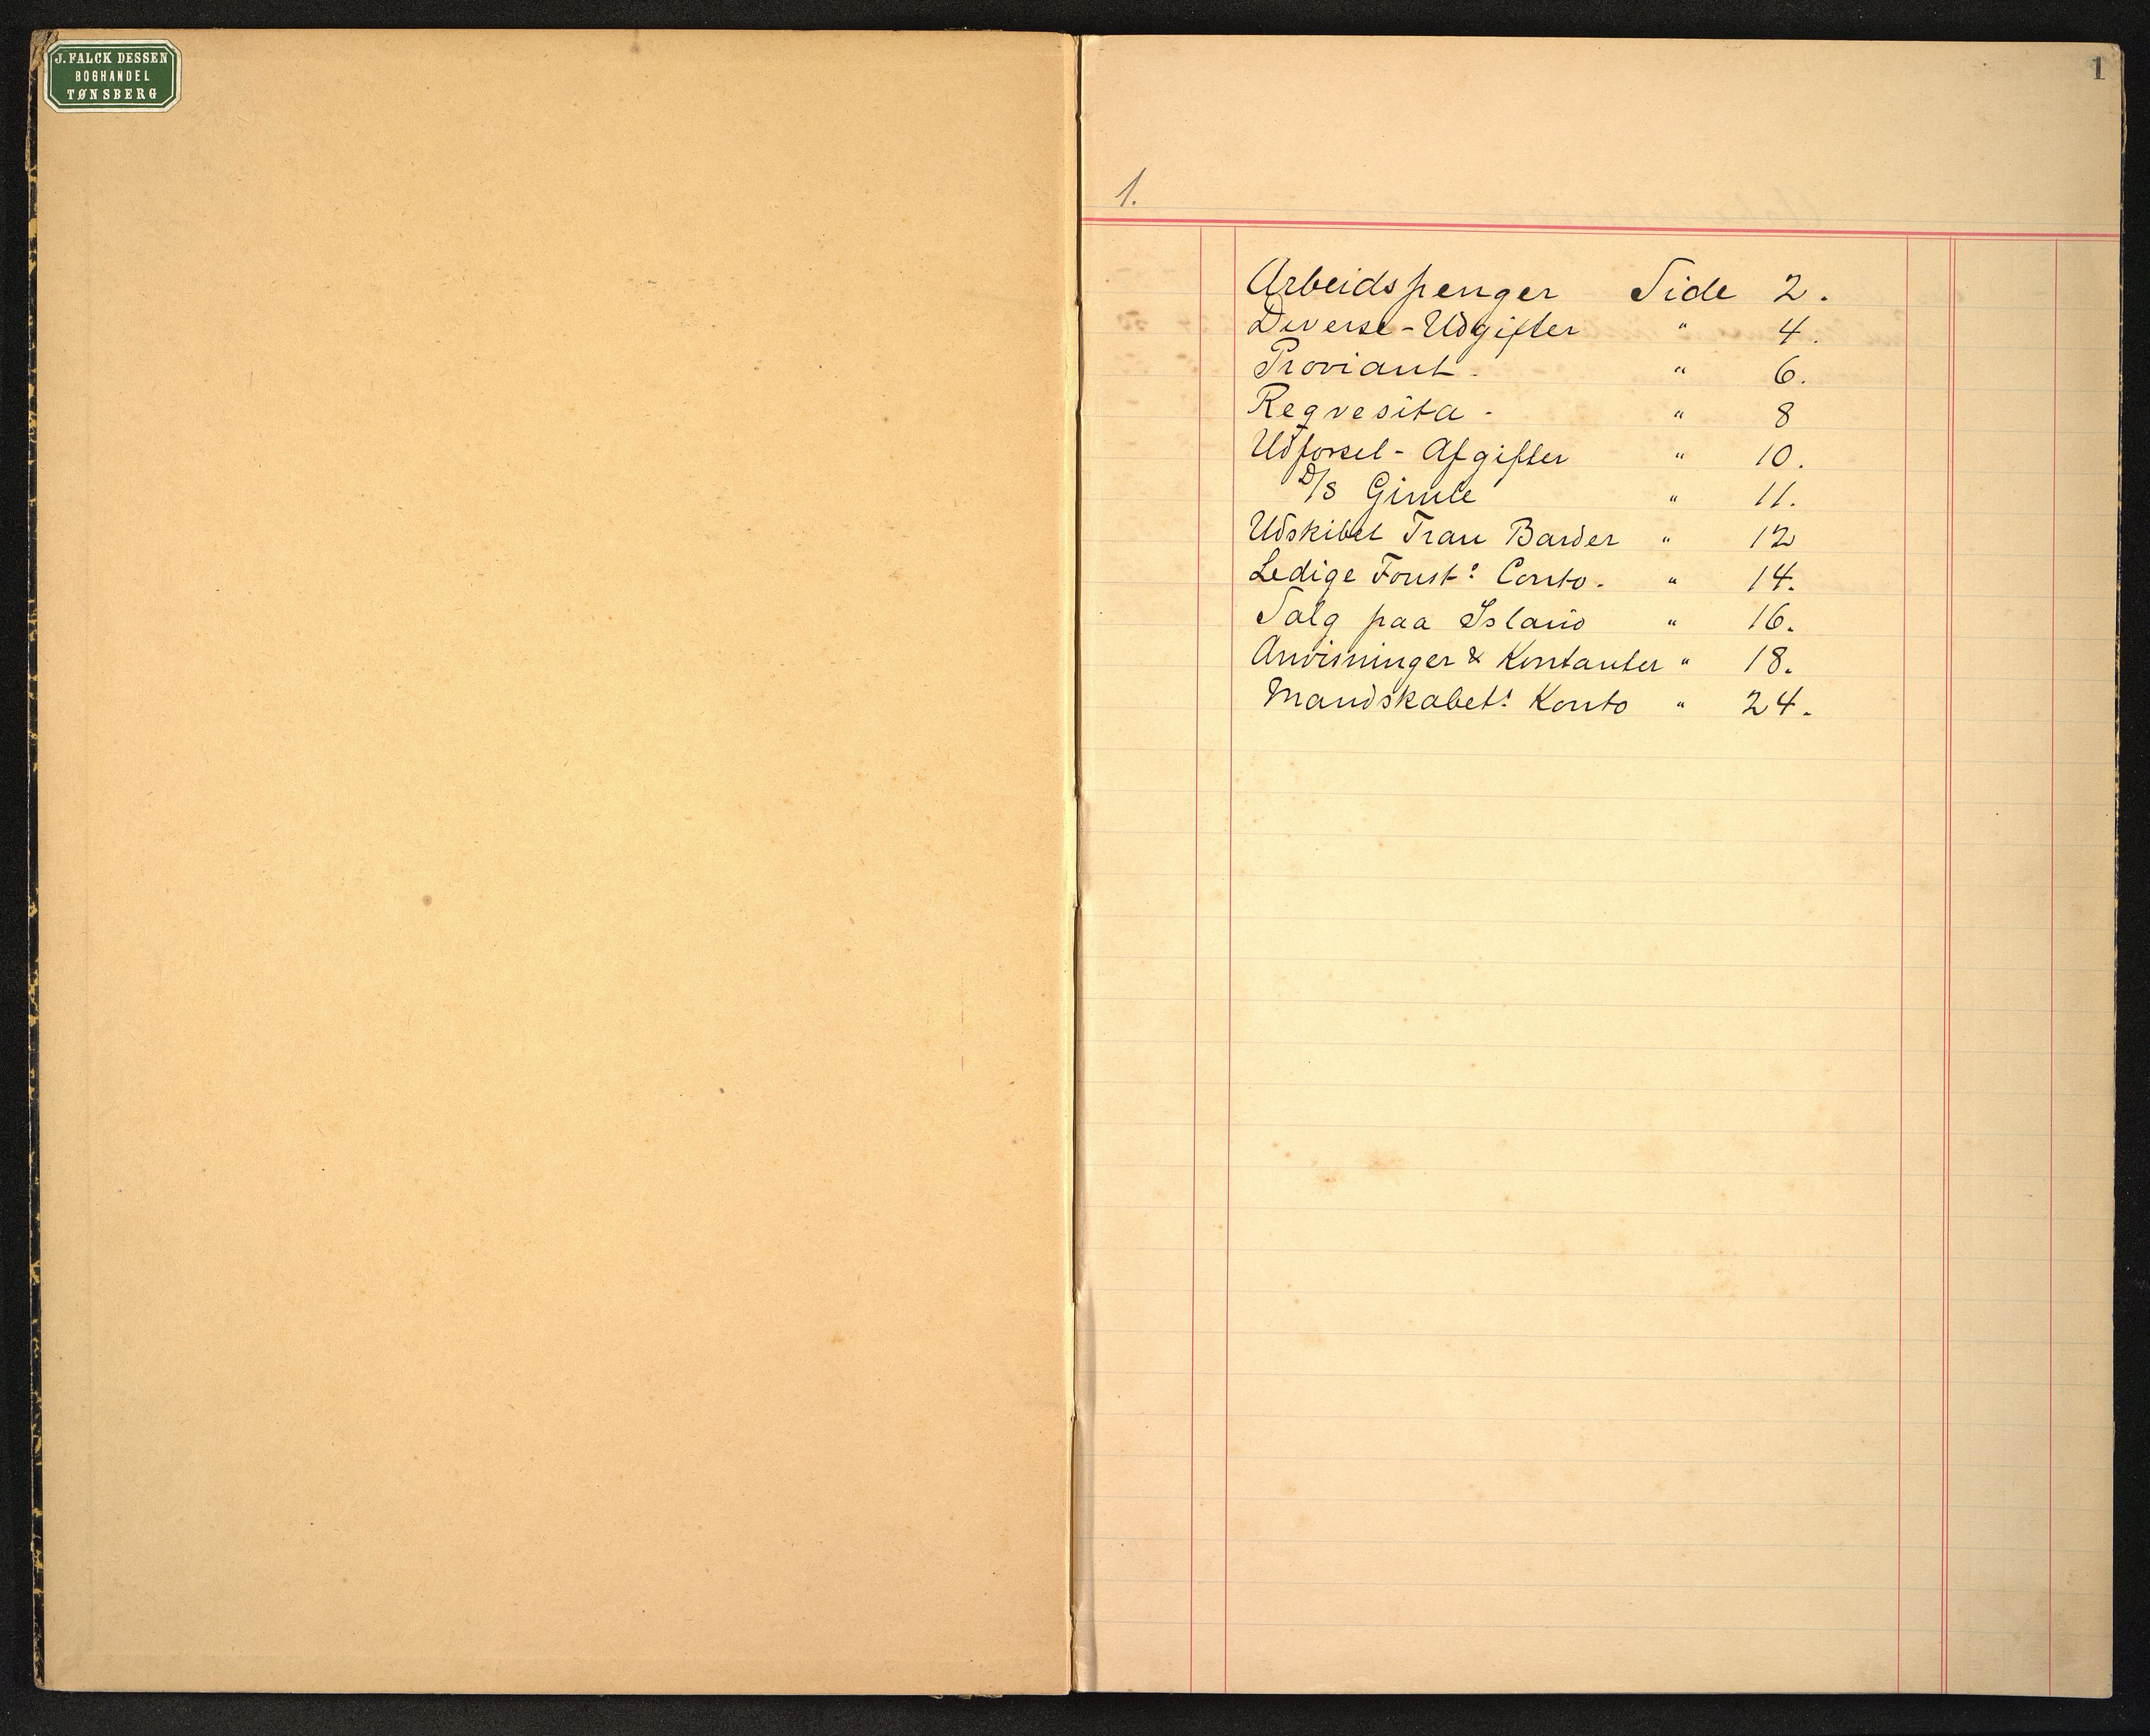 J. FALCK DESSEN
BOGHANDEL
TØNSBERG
1
1.
Arbeidspenger Side 2.
Diverse-Udgifter " 4.
Proviant. " 6.
Reqvesita - " 8
Udførsel- Afgifter " 10.
D/S Gimle " 11.
Udskibet Tran Barder " 12
Ledige Fust: Conto. " 14.
Salg paa Island " 16.
Anvisninger & Kontanter " 18.
Mandskabet: Konto " 24.